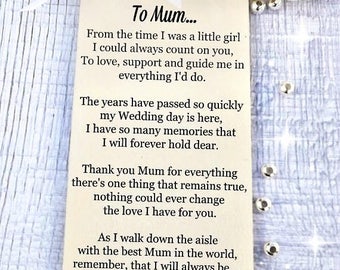 To Mum...
From the time I was a little girl
I could always count on you,
To love, support and guide me in
everything I'd do.
The years have passed so quickly
my Wedding day is here,
I have so many memories that
I will forever hold dear.
Thank you Mum for everything
there's one thing that remains true,
nothing could ever change
the love I have for you.
As I walk down the aisle
with the best Mum in the world,
remember, that I will always be